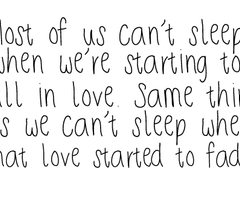 lost of us can't sleep
when we're starting to
all in love. Same thin
s we can't sleep whe
hat love started to fad